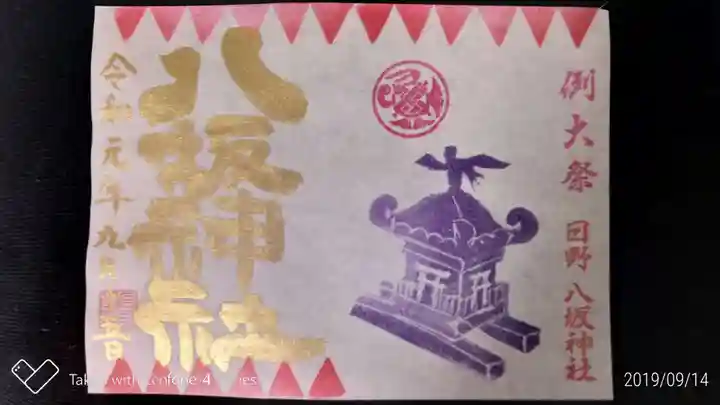 例大祭 日野 八坂神社
八坂神社
令和元年九月
Taken with Zenfone 4 Series
2019/09/14